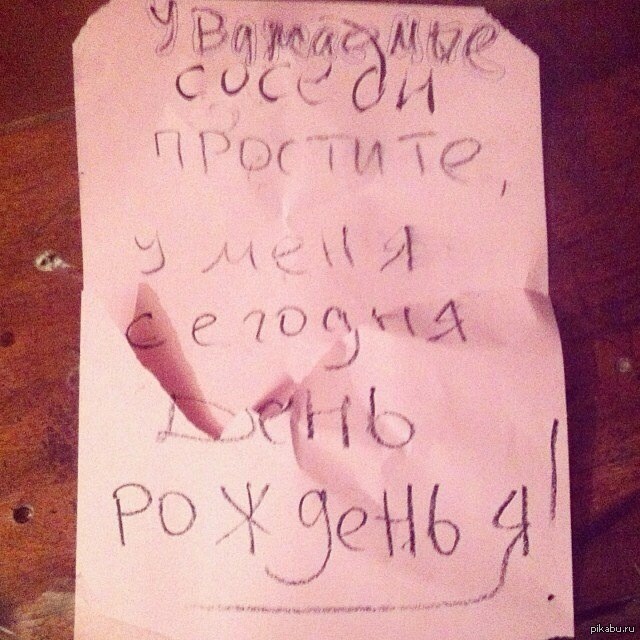 Уважаемые
соседи
простите,
у меня
сегодня
День
рожденья!
pikabu.ru